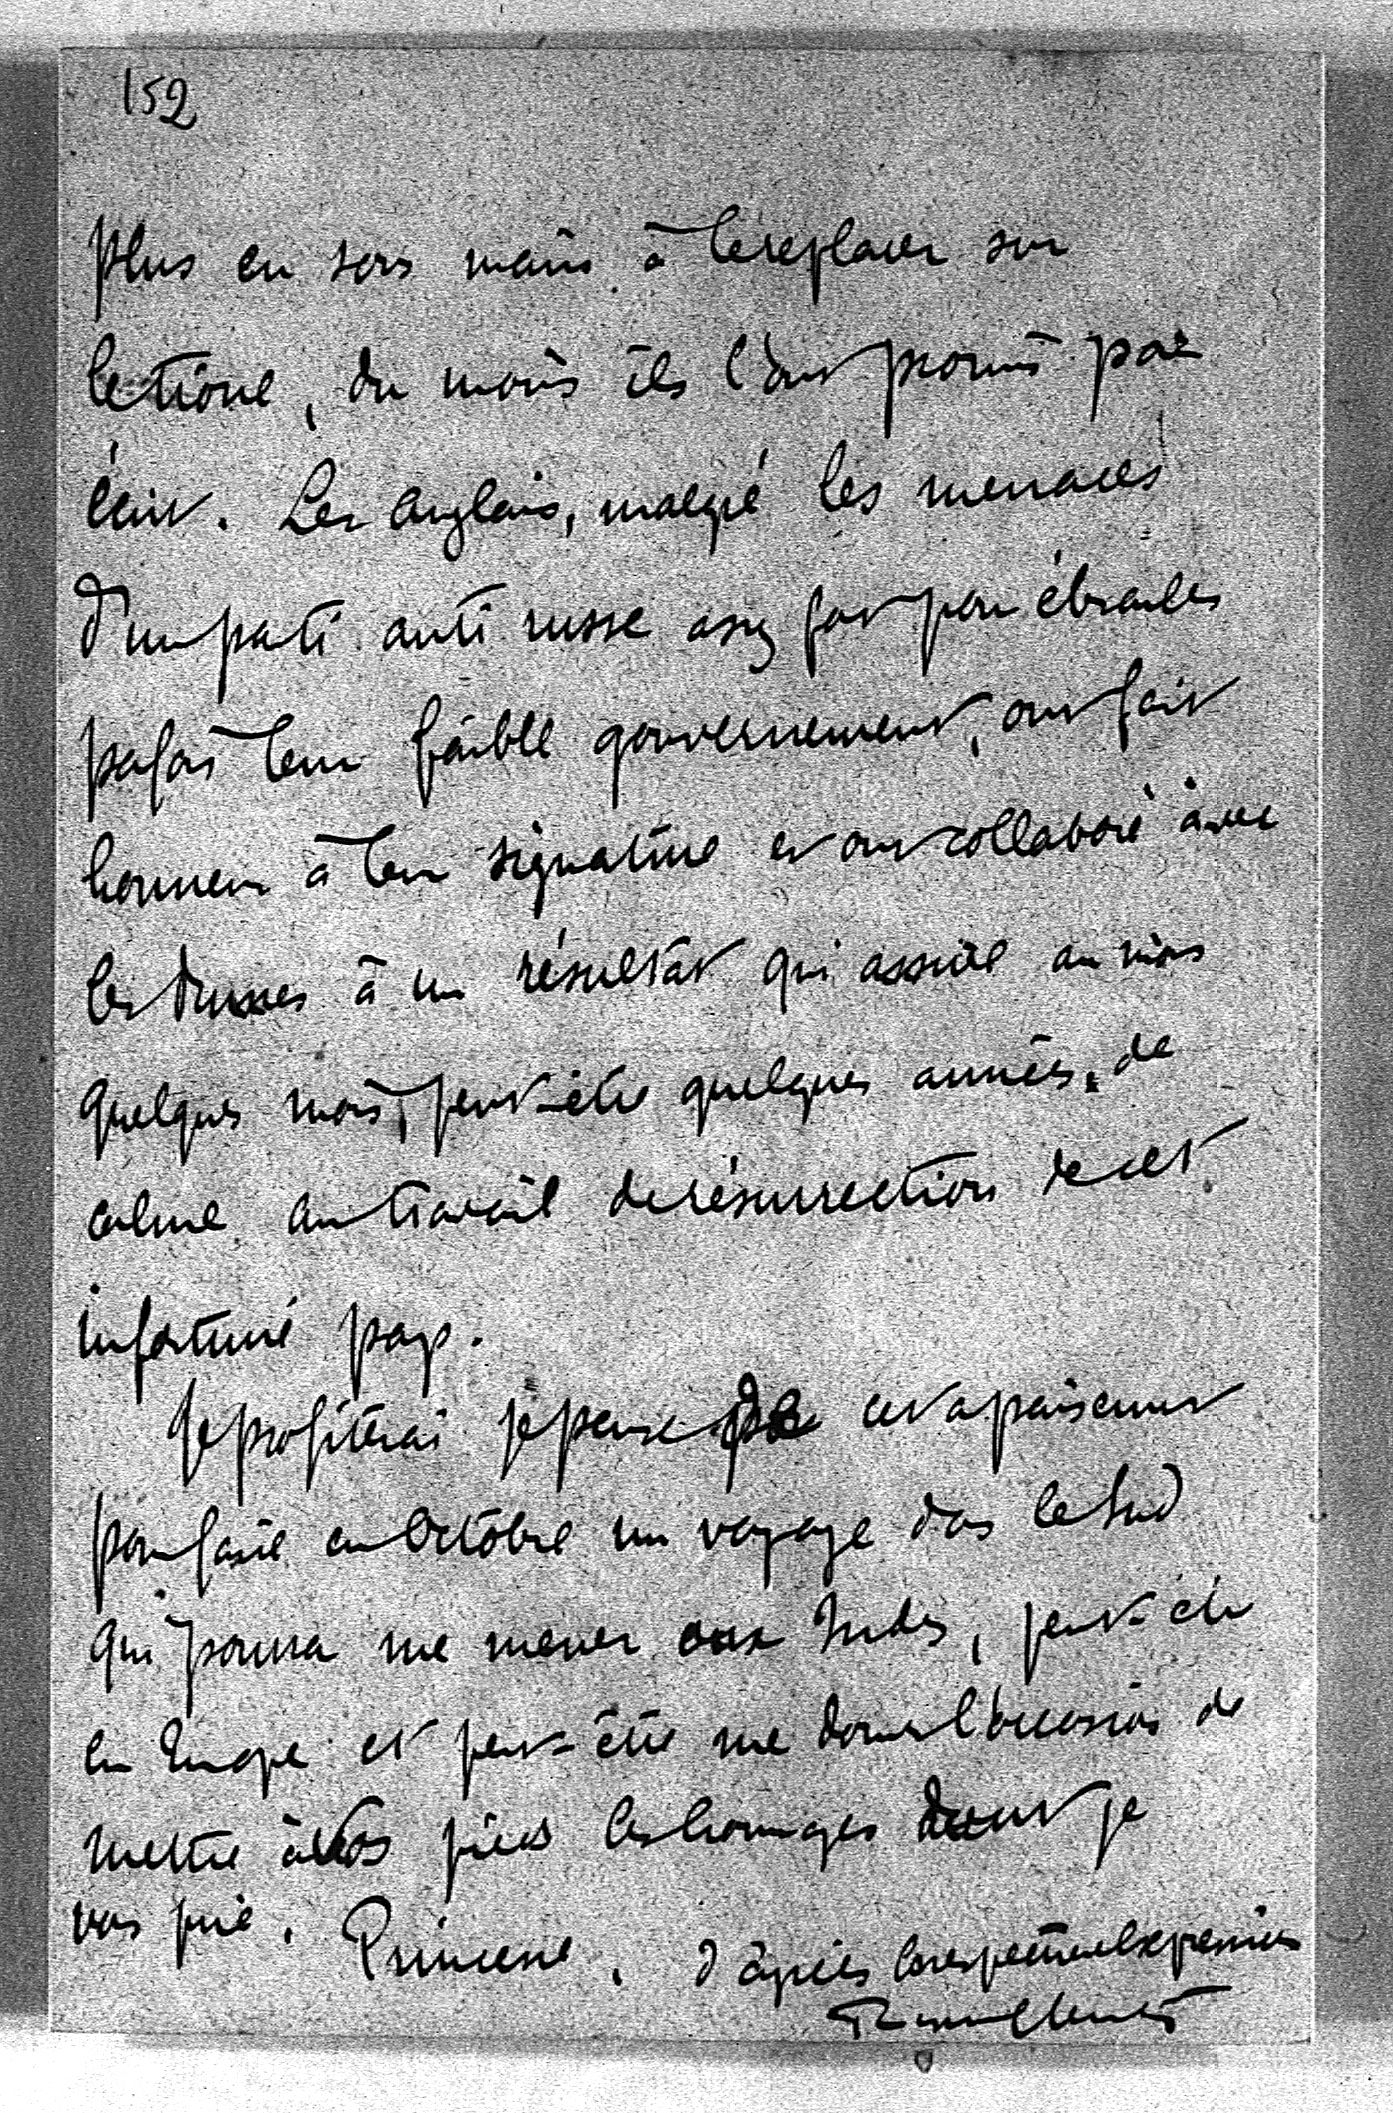 152
plus en sous main à le replacer sur
le trône, du moins ils l'ont promis par
écrit. Les Anglais, malgré les menaces
d'un parti anti russe assez fort pour ébranler
parfois leur faible gouvernement, ont fait
honneur à leur signature et ont collaboré avec
les Russes à un résultat qui assure au moins
quelques mois, peut-être quelques années, de
calme au travail de résurrection de cet
infortuné pays.
Je profiterai je pense de cet apaisement
pour faire en Octobre un voyage dans le Sud
qui pourra me mener aux Indes, peut-être
en Europe et peut-être me donner l'occasion de
mettre à vos pieds les hommages dont je
vous prie, Princesse, d'agréer la respectueuse expression